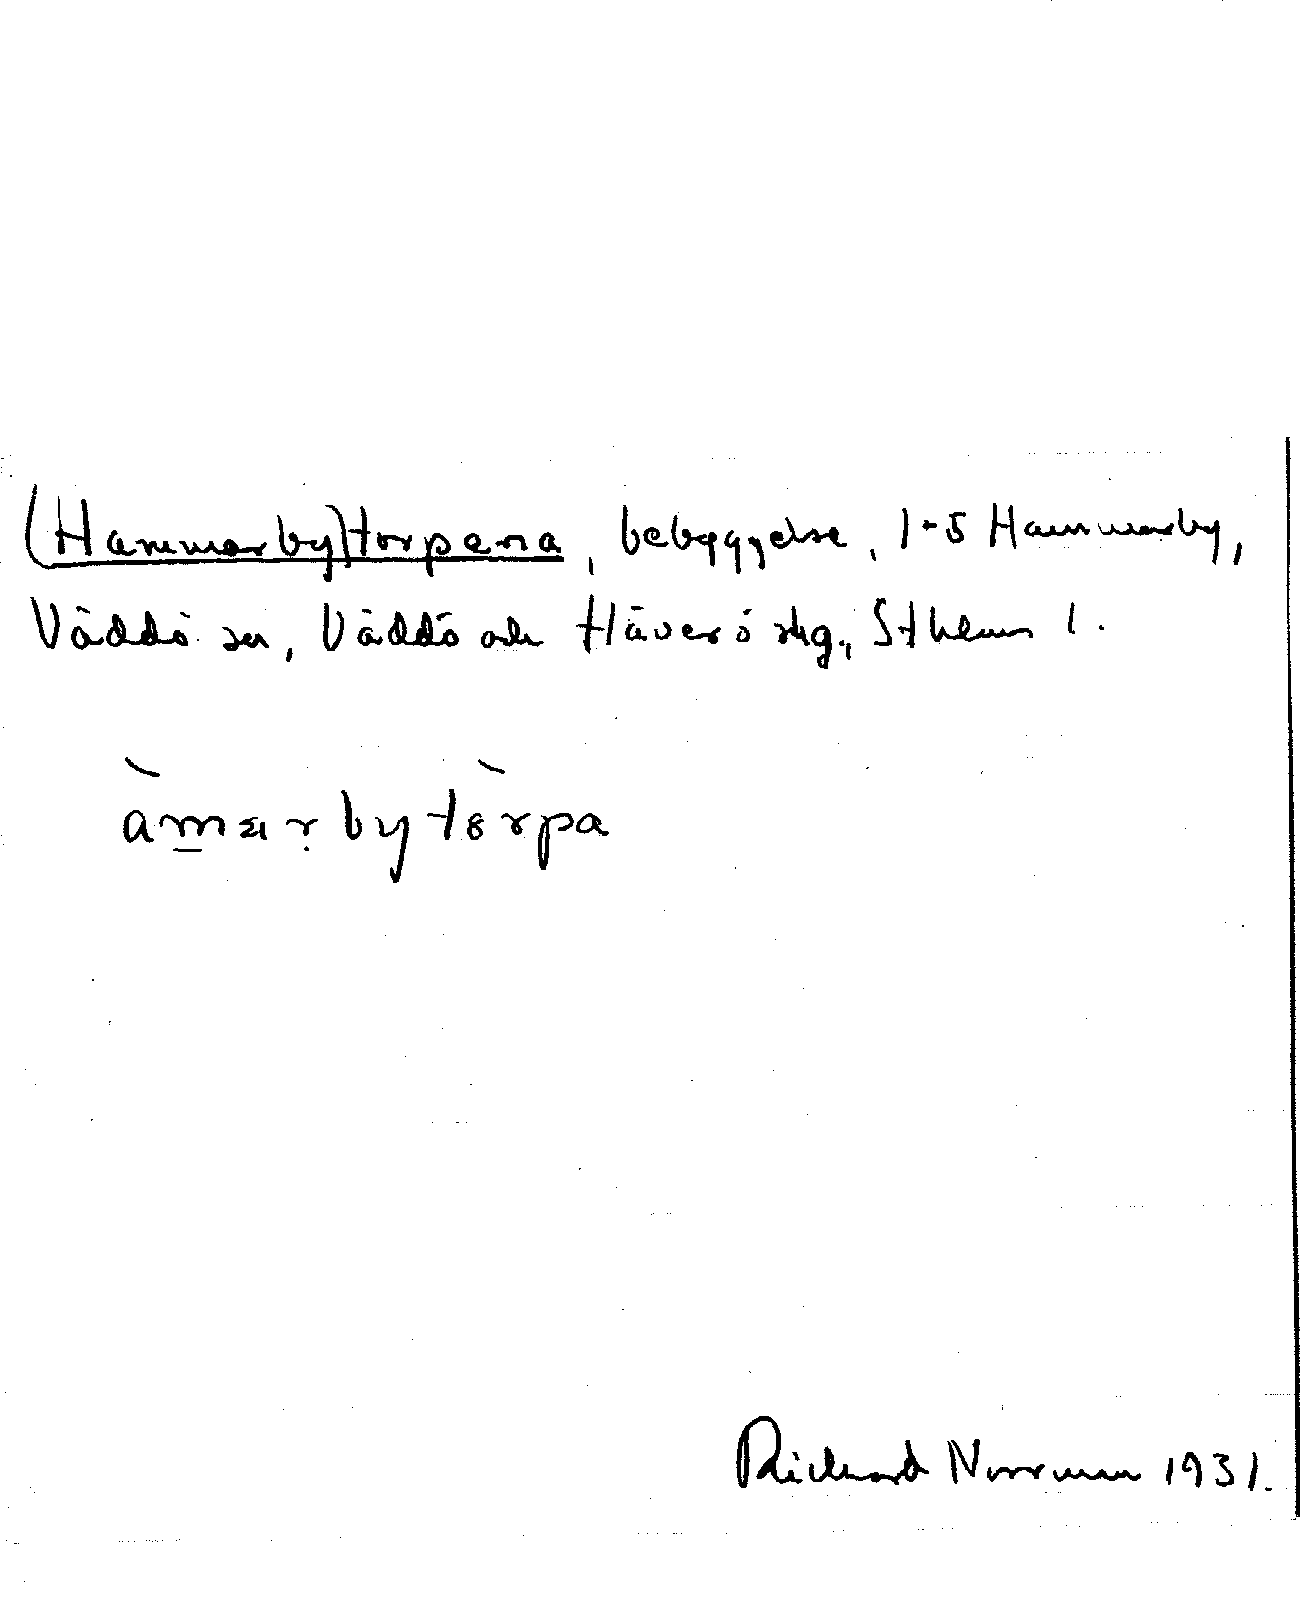 (Hammarby)torpena, bebyggelse, 1-5 Hammarby,
Väddö sn, Väddö och Häverö skg., Sthlms l.
àmarbytòrpa
Richard Norrman 1931.